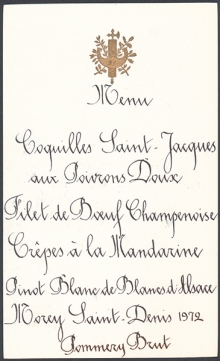 Menu
Coquilles Saint-Jacques
aux Poivrons Doux
Filet de Bœuf Champenoise
Crêpes à la Mandarine
Pinot Blanc de Blancs d'Alsace
Morey Saint-Denis 1972
Pommery Brut